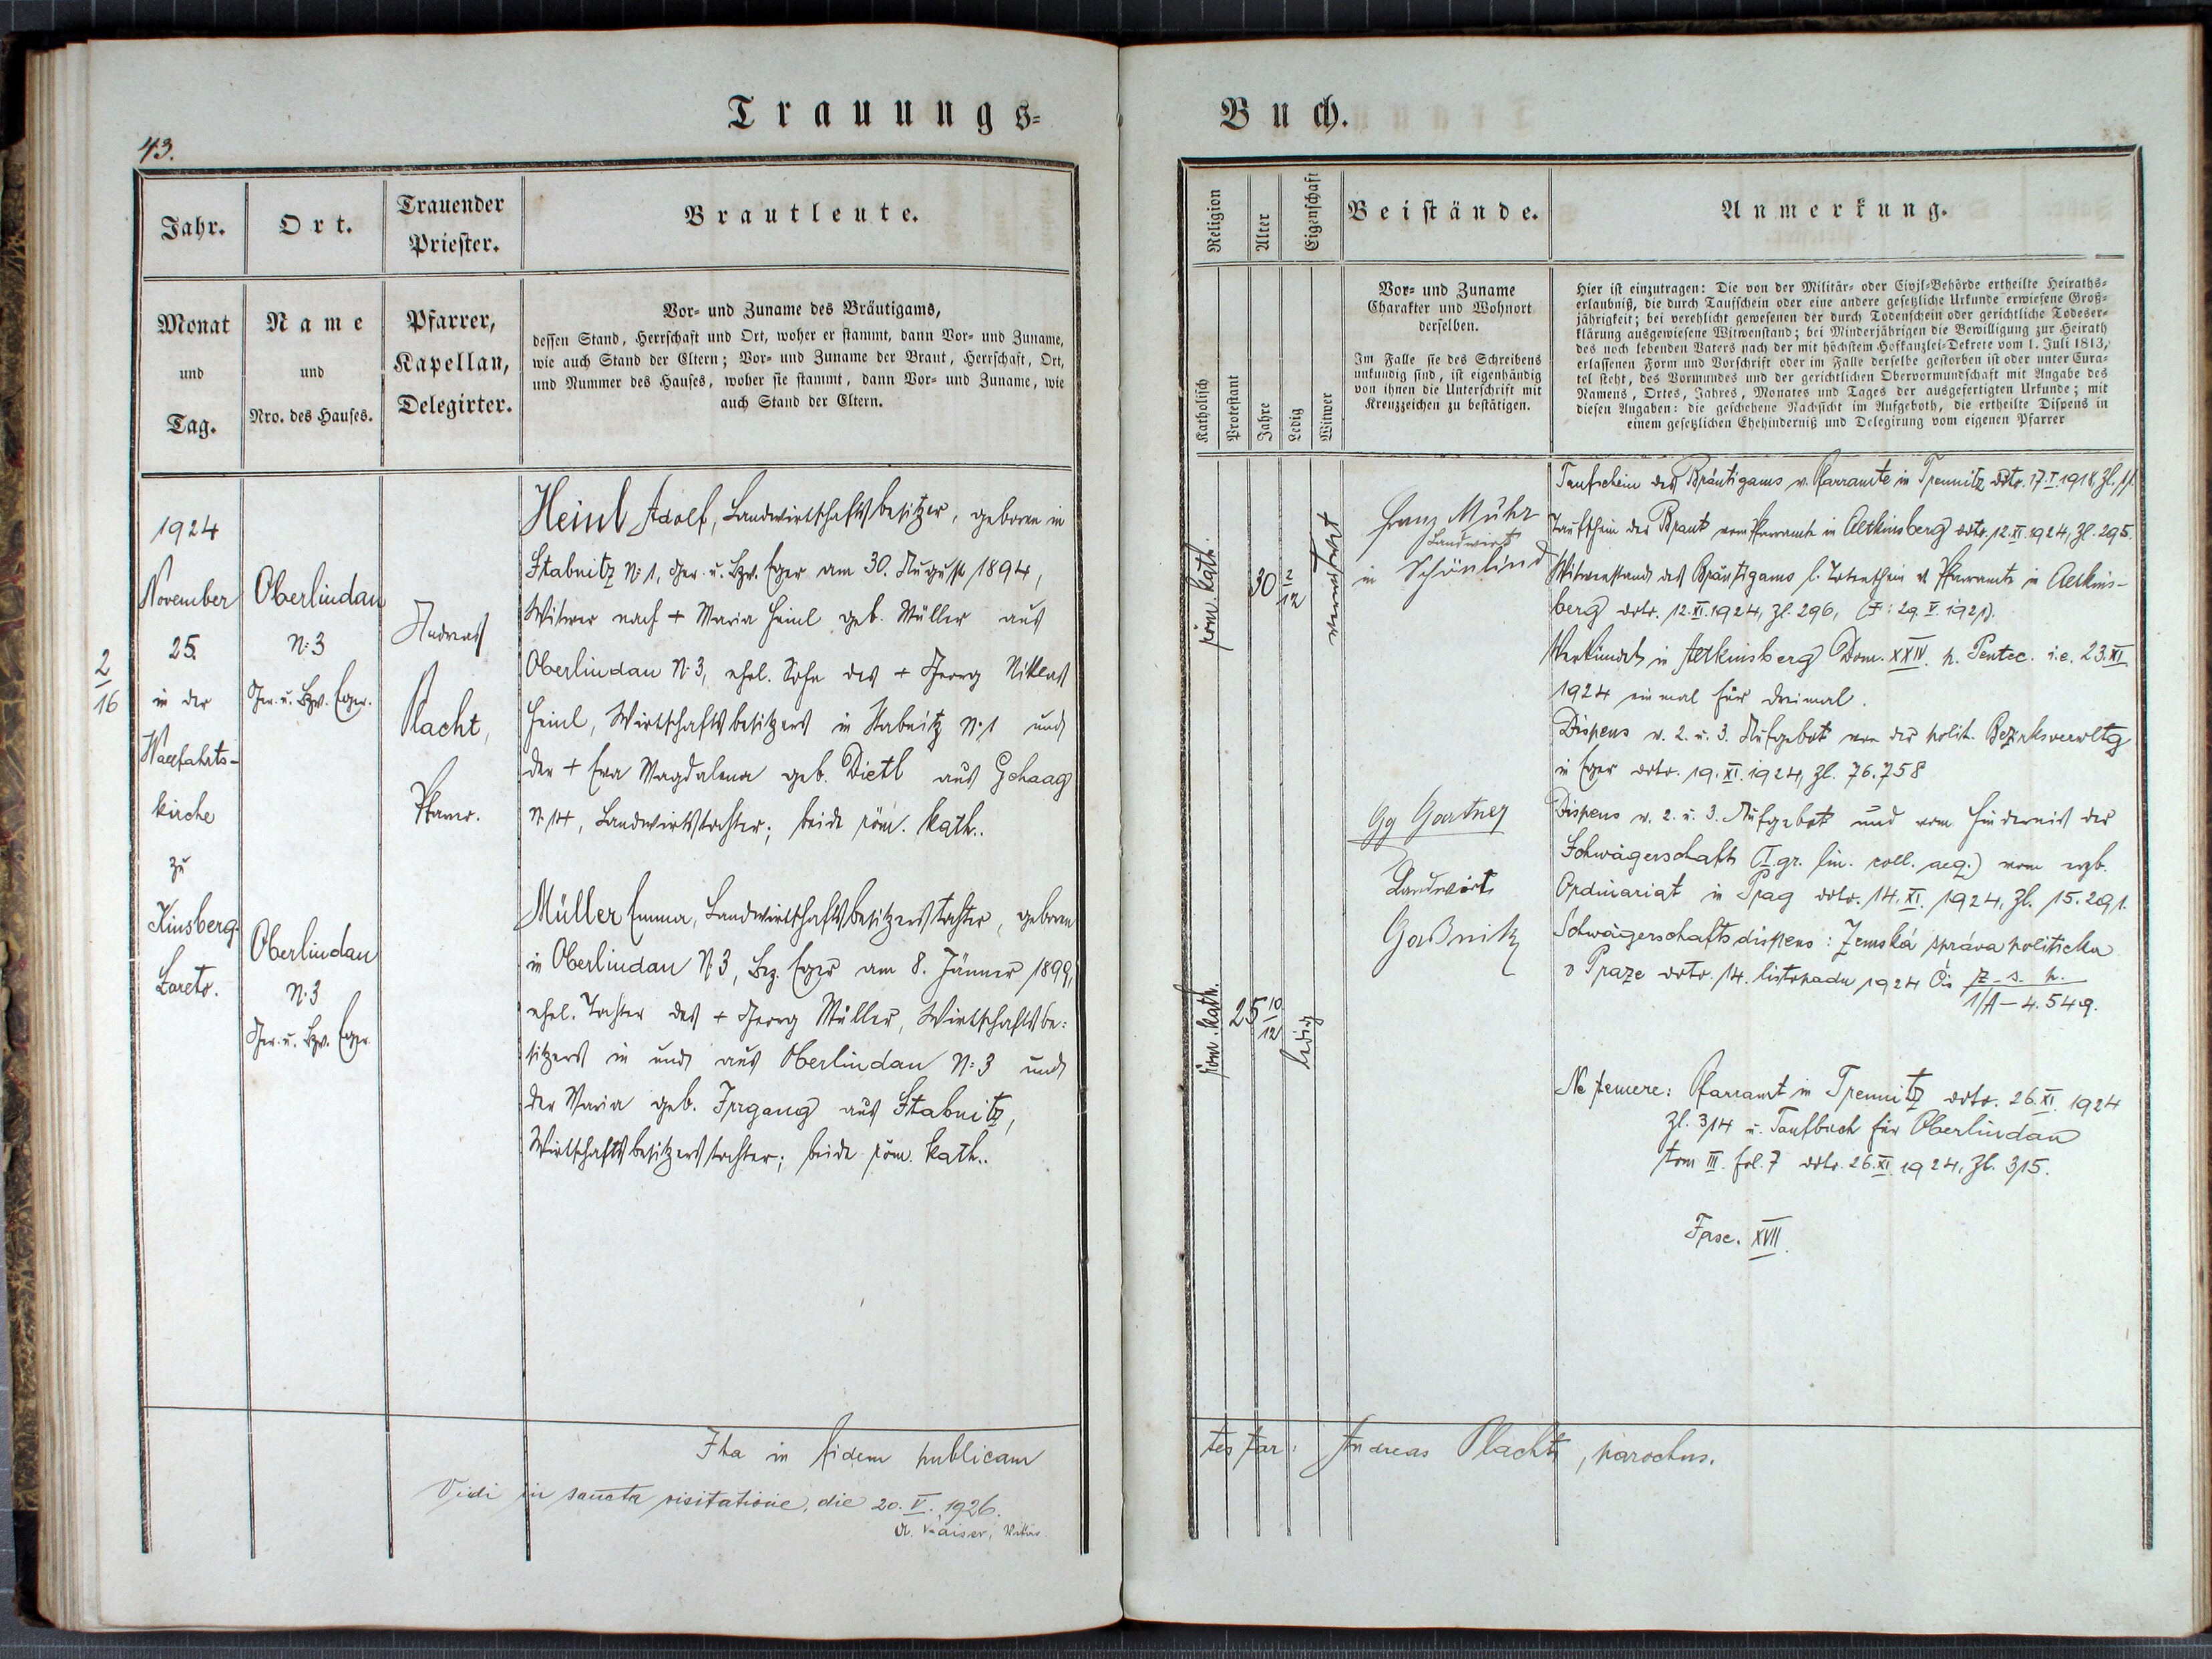 Trauungs=
Buch.
43.
Jahr.
Ort.
Trauender
Priester.
Brautleute.
Monat
und
Tag.
Name
und
Nro. des Hauses.
Pfarrer,
Kapellan,
Delegirter.
Vor- und Zuname des Bräutigams,
dessen Stand, Herrschaft und Ort, woher er stammt, dann Vor- und Zuname,
wie auch Stand der Eltern; Vor- und Zuname der Braut, Herrschaft, Ort,
und Nummer des Hauses, woher sie stammt, dann Vor- und Zuname, wie
auch Stand der Eltern.
1924
November
25.
in der
Wallfahrts-
kirche
zu
Kinsberg
Loreto.
2
16
Oberlindau
N: 3
Ger. u. Bzv. Eger.
Oberlindau
N: 3
Ger. u. Bzv. Eger.
Andreas
Placht,
Pfarrer.
Heinl Adolf, Landwirtschaftsbesitzer, geboren in
Stabnitz N: 1, Ger. u. Bzv. Eger am 30. August 1894,
Witwer nach + Maria Heinl geb. Müller aus
Oberlindau N: 3, ehel. Sohn des + Georg Niklas
Heinl, Wirtschaftsbesitzers in Stabnitz N: 1 und
der + Eva Magdalena geb. Dietl aus Gehaag
N. 14, Landwirtstochter; beide röm. kath..
Müller Emma, Landwirtschaftsbesitzerstochter, geboren
in Oberlindau N: 3, Bez. Eger am 8. Jänner 1899,
ehel. Tochter des + Georg Müller, Wirtschaftsbe:
sitzers in und aus Oberlindau N: 3 und
der Maria geb. Irrgang aus Stabnitz,
Wirtschaftsbesitzerstochter; beide röm. kath..
Ita in fidem publicam
Vidi in sancta visitatione, die 20. V. 1926.
A. Kaiser, Vikär
Religion
Alter
Eigenschaft
Beistände.
Anmerkung.
Katholisch
Protestant
Jahre
Ledig
Witwer
Vor- und Zuname
Charakter und Wohnort
derselben.
Im Falle sie des Schreibens
unkundig sind, ist eigenhändig
von ihnen die Unterschrift mit
Kreuzzeichen zu bestätigen.
Hier ist einzutragen: Die von der Militär- oder Civil-Behörde ertheilte Heiraths-
erlaubniß, die durch Taufschein oder eine andere gesetzliche Urkunde erwiesene Groß-
jährigkeit; bei verehlicht gewesenen der durch Todenschein oder gerichtliche Todeser-
klärung ausgewiesene Witwenstand; bei Minderjährigen die Bewilligung zur Heirath
des noch lebenden Vaters nach der mit höchstem Hofkanzlei-Dekrete vom 1. Juli 1813,
erlassenen Form und Vorschrift oder im Falle derselbe gestorben ist oder unter Cura-
tel steht, des Vormundes und der gerichtlichen Obervormundschaft mit Angabe des
Namens, Ortes, Jahres, Monates und Tages der ausgefertigten Urkunde; mit
diesen Angaben: die geschehene Nachsicht im Aufgeboth, die ertheilte Dispens in
einem gesetzlichen Ehehinderniß und Delegirung vom eigenen Pfarrer
röm. kath.
30 2/12
verwitwet
röm. kath.
25 10/12
ledig
Franz Mühr
Landwirt
in Schönlind
Gg Gartner
Landwirt
Gaßnitz
Taufschein des Bräutigams v. Pfarramte in Trennitz ddto. 17. I. 1918, Zl. 11.
Taufschein der Braut vom Pfarramte in Altkinsberg ddto. 12. XI. 1924, Zl. 295.
Witwenstand des Bräutigams l. Totenschein v. Pfarramte in Altkins-
berg ddto. 12. XI. 1924, Zl. 296, (+: 29. V. 1921).
Verkündet in Altkinsberg Dom. XXIV. p. Pentec. i.e. 23. XI.
1924 einmal für dreimal.
Dispens v. 2. u. 3. Aufgebot von der polit. Bezirksverwltg
in Eger ddto. 19. XI. 1924, Zl. 76.758
Dispens v. 2. u. 3. Aufgebot und vom Hindernis der
Schwägerschaft (I. gr. lin. coll. aeq.) vom erzb.
Ordinariat in Prag ddto. 14. XI. 1924, Zl. 15.291.
Schwägerschaftsdispens: Zemská správa politicka
v Praze ddto. 14. listopadu 1924 Čis z. s. p.
1/A - 4.549.
Ne temere: Pfarramt in Trennitz ddto. 26. XI. 1924
Zl. 314 u. Taufbuch für Oberlindau
tom III. fol. 7 ddto. 26. XI. 1924, Zl. 315.
Fasc. XVII.
testar: Andreas Placht, parochus.